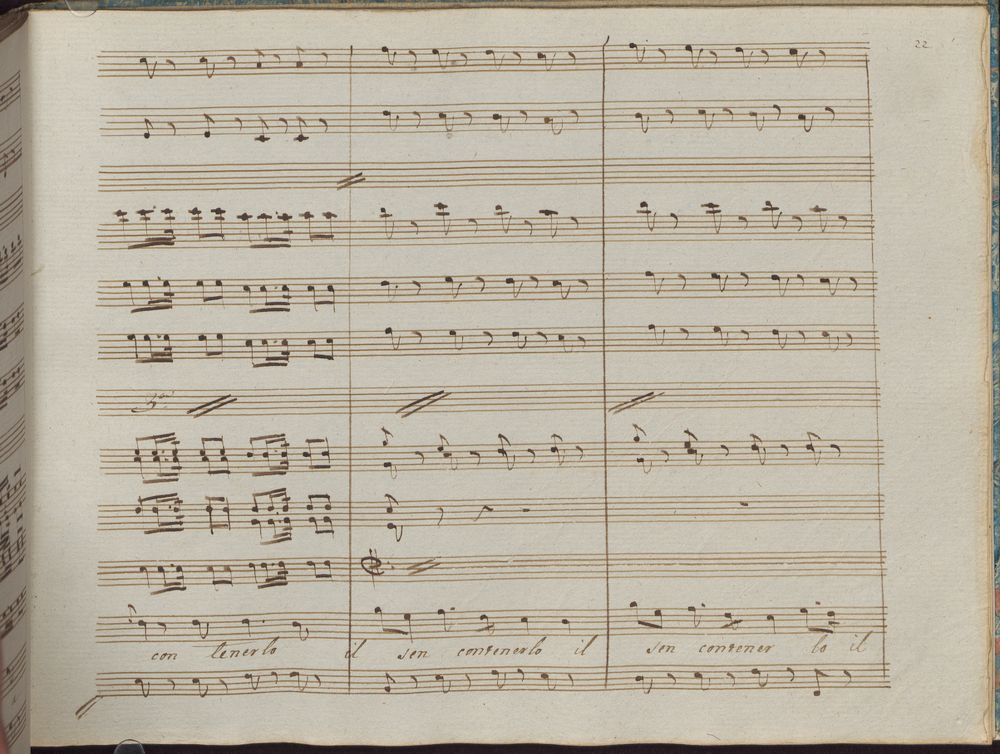 22
con tenerlo il sen contenerlo il sen contener lo il